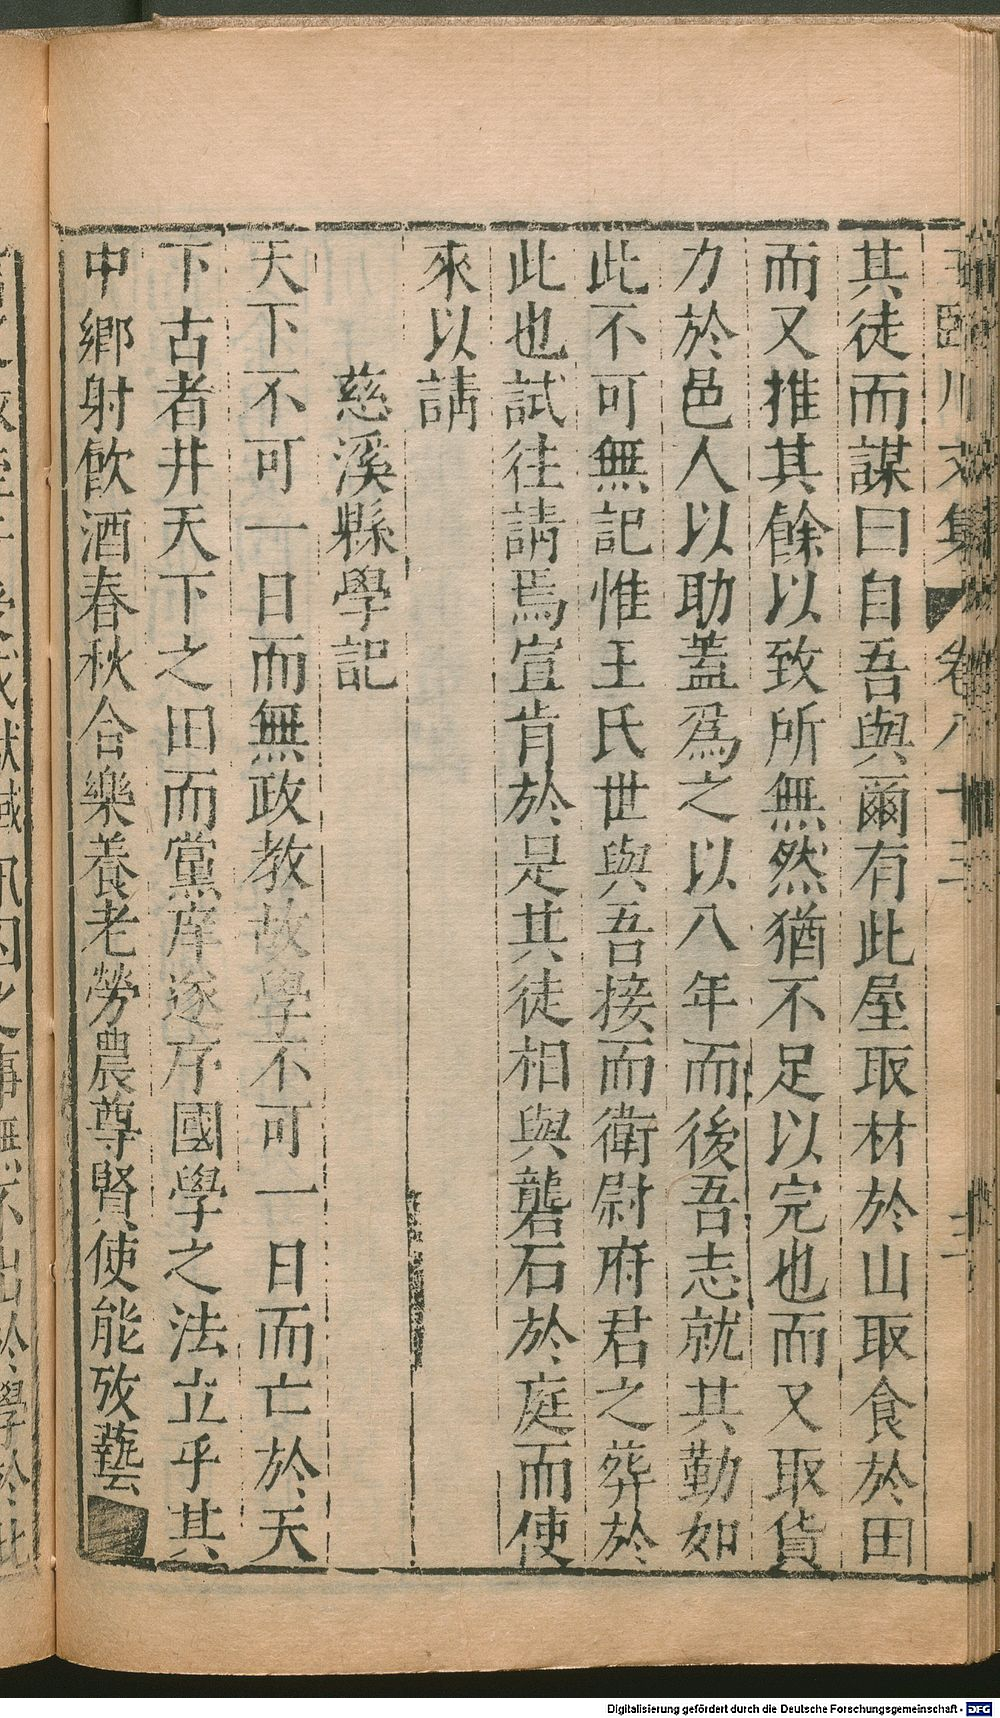 臨川文集 卷八十三
二
其徒而謀曰自吾與爾有此屋取材於山取食於田
而又推其餘以致所無然猶不足以完也而又取貨
力於邑人以助蓋爲之以八年而後吾志就其勤如
此不可無記惟王氏世與吾接而衛尉府君之葬於
此也試往請焉宣肯於是其徒相與礱石於庭而使
來以請
慈溪縣學記
天下不可一日而無政教故學不可一日而亡於天
下古者井天下之田而黨庠遂序國學之法立乎其
中鄉射飮酒春秋合樂養老勞農尊賢使能攷藝
Digitalisierung gefördert durch die Deutsche Forschungsgemeinschaft - DFG